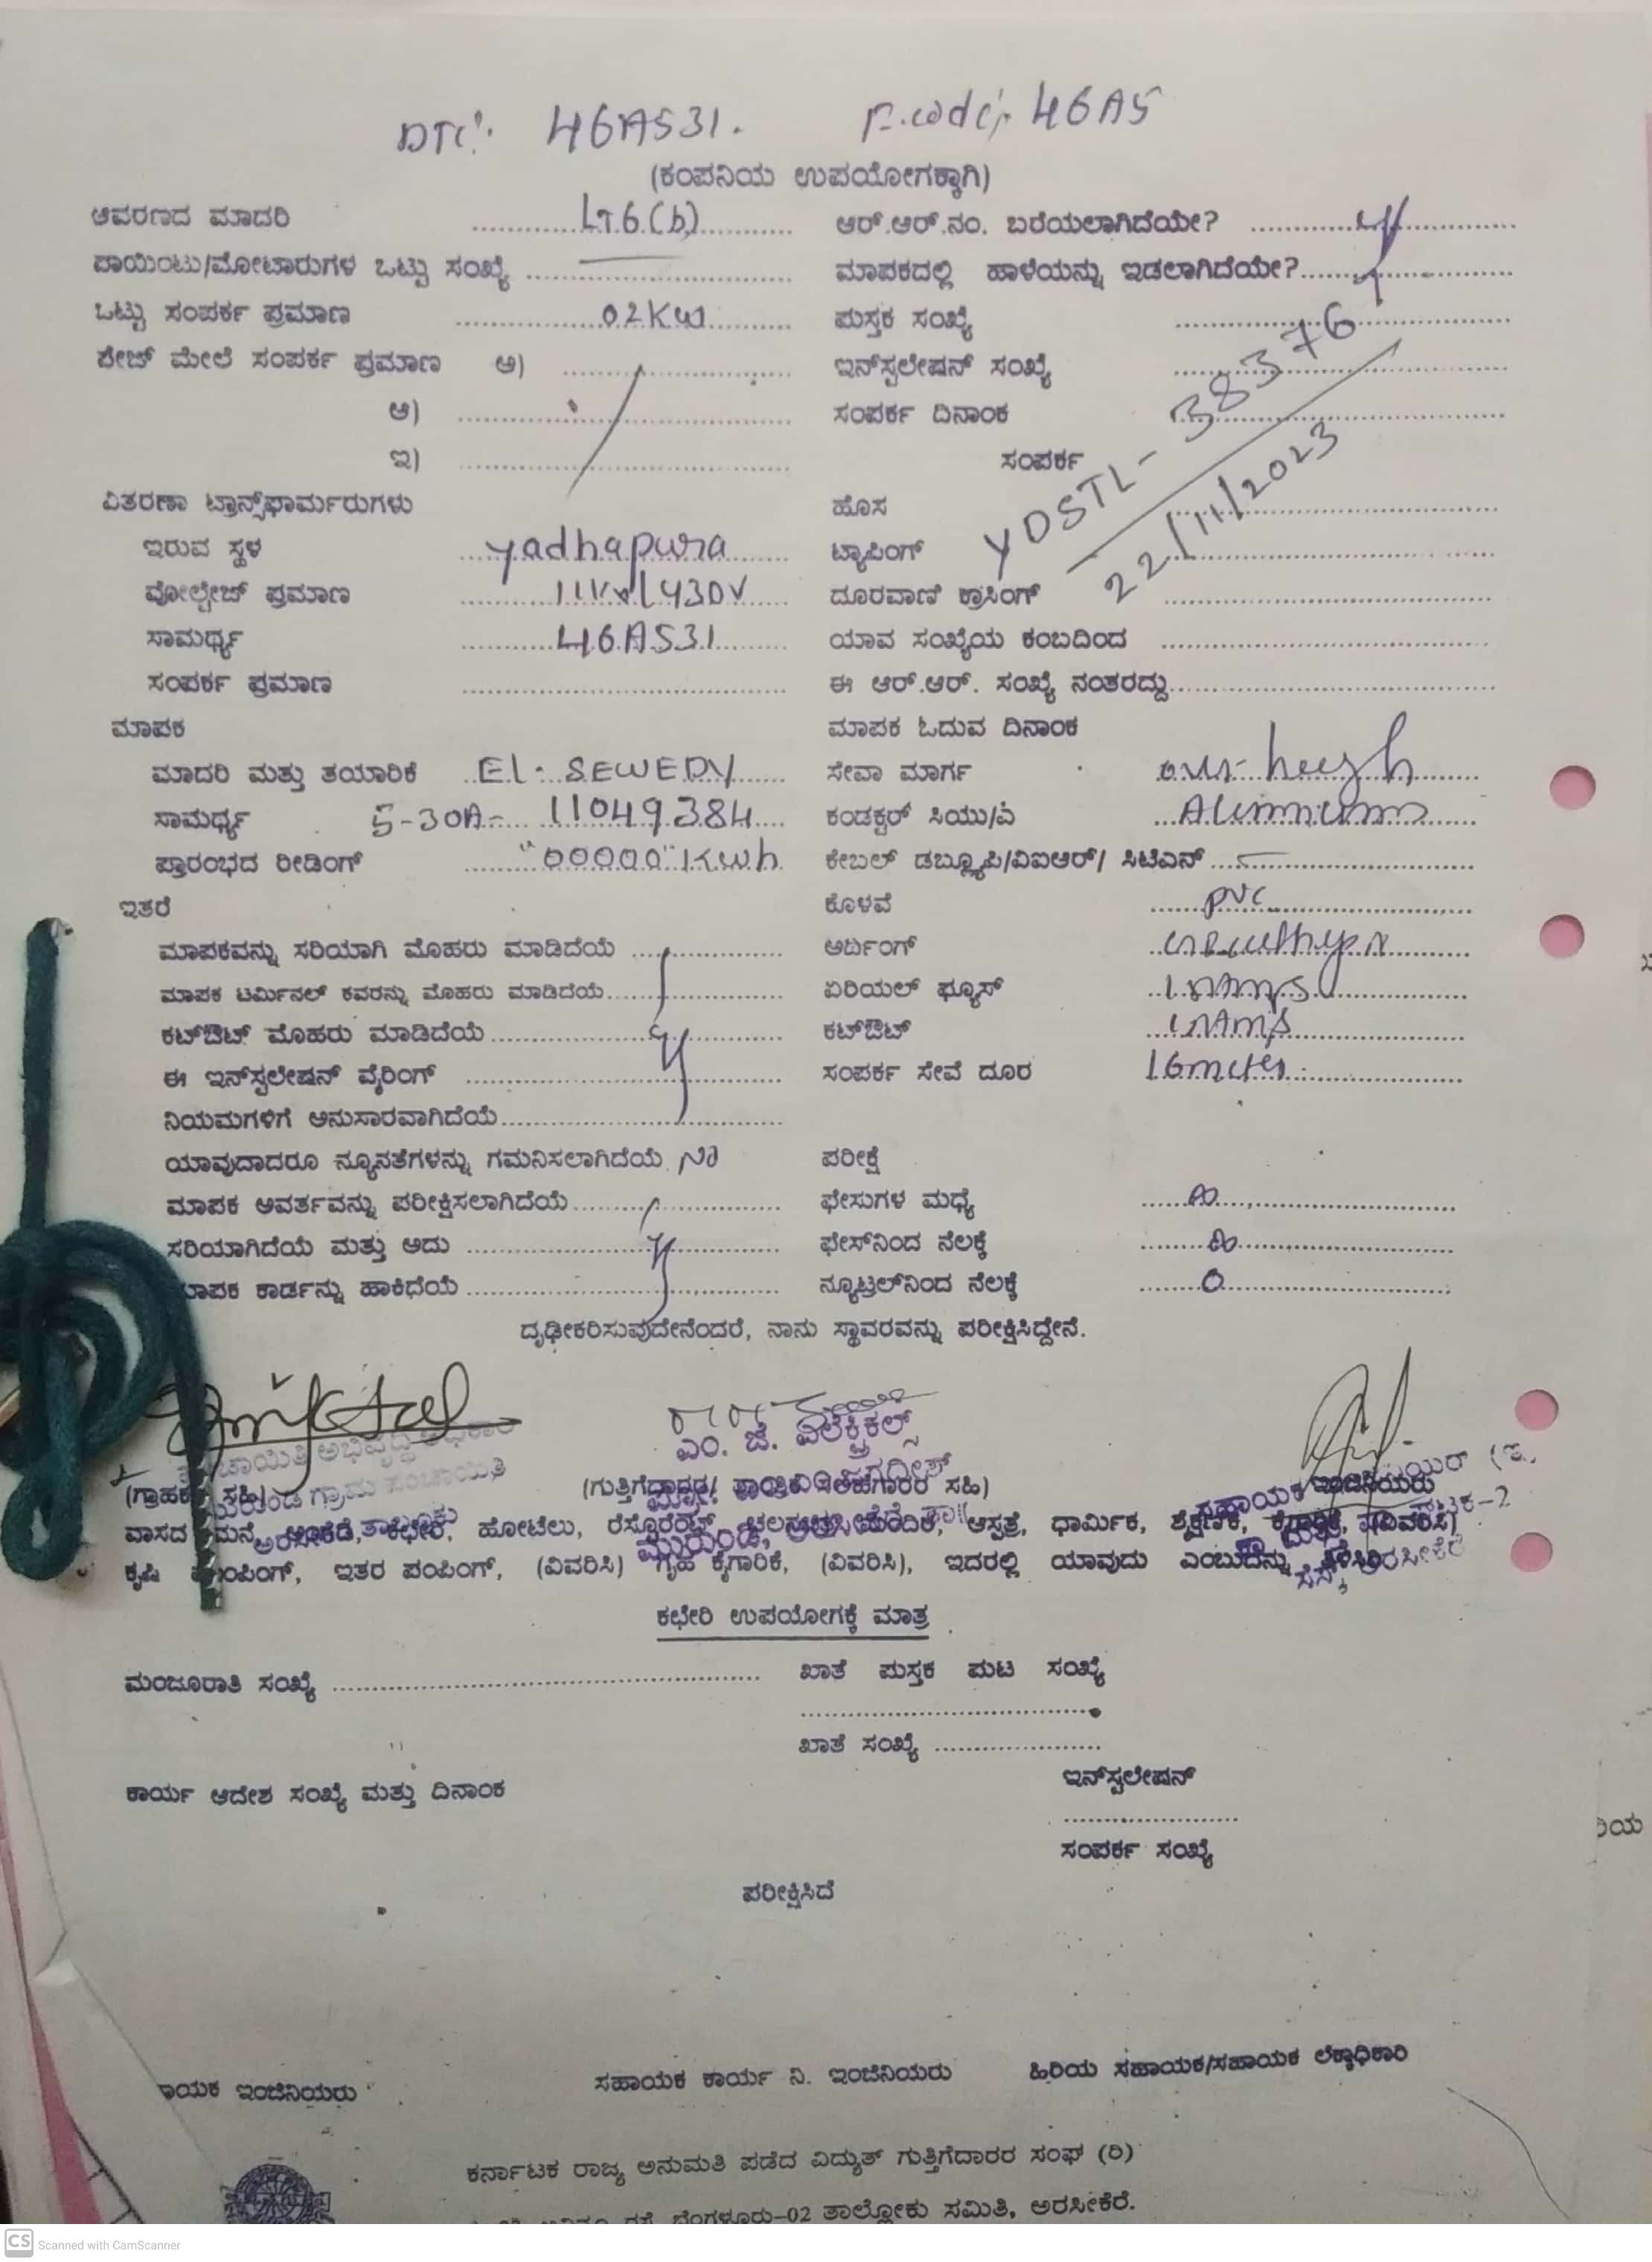 DTC:- 46AS31. F.code:- 46AS
(ಕಂಪನಿಯ ಉಪಯೋಗಕ್ಕಾಗಿ)
ಆವರಣದ ಮಾದರಿ LT6(b) ಆರ್.ಆರ್.ನಂ. ಬರೆಯಲಾಗಿದೆಯೇ?
ಪಾಯಿಂಟು/ಮೋಟಾರುಗಳ ಒಟ್ಟು ಸಂಖ್ಯೆ ಮಾಪಕದಲ್ಲಿ ಹಾಳೆಯನ್ನು ಇಡಲಾಗಿದೆಯೇ?
ಒಟ್ಟು ಸಂಪರ್ಕ ಪ್ರಮಾಣ 02Kw ಪುಸ್ತಕ ಸಂಖ್ಯೆ
ಪೇಜ್ ಮೇಲೆ ಸಂಪರ್ಕ ಪ್ರಮಾಣ ಅ) ಇನ್‌ಸ್ಟಲೇಷನ್ ಸಂಖ್ಯೆ
ಆ) ಸಂಪರ್ಕ ದಿನಾಂಕ
ಇ) ಸಂಪರ್ಕ
YDSTL-38376
22/11/2023
ವಿತರಣಾ ಟ್ರಾನ್ಸ್‌ಫಾರ್ಮರುಗಳು ಹೊಸ
ಇರುವ ಸ್ಥಳ yadhapura ಟ್ಯಾಪಿಂಗ್
ವೋಲ್ಟೇಜ್ ಪ್ರಮಾಣ 11Kv/430V ದೂರವಾಣಿ ಕ್ರಾಸಿಂಗ್
ಸಾಮರ್ಥ್ಯ 46AS31 ಯಾವ ಸಂಖ್ಯೆಯ ಕಂಬದಿಂದ
ಸಂಪರ್ಕ ಪ್ರಮಾಣ ಈ ಆರ್.ಆರ್. ಸಂಖ್ಯೆ ನಂತರದ್ದು
ಮಾಪಕ ಮಾಪಕ ಓದುವ ದಿನಾಂಕ
ಮಾದರಿ ಮತ್ತು ತಯಾರಿಕೆ El- SEWEDY ಸೇವಾ ಮಾರ್ಗ
ಸಾಮರ್ಥ್ಯ 5-30A- 11049384 ಕಂಡಕ್ಟರ್ ಸಿಯು/ಎ
ಪ್ರಾರಂಭದ ರೀಡಿಂಗ್ "00000" Kwh ಕೇಬಲ್ ಡಬ್ಲ್ಯೂಪಿ/ವಿಐಆರ್/ ಸಿಟಿಎನ್
ಇತರೆ ಕೊಳವೆ PVC
ಮಾಪಕವನ್ನು ಸರಿಯಾಗಿ ಮೊಹರು ಮಾಡಿದೆಯೆ ಅರ್ದಿಂಗ್
ಮಾಪಕ ಟರ್ಮಿನಲ್ ಕವರನ್ನು ಮೊಹರು ಮಾಡಿದೆಯೆ ಏರಿಯಲ್ ಫ್ಯೂಸ್
ಕಟ್‌ಔಟ್ ಮೊಹರು ಮಾಡಿದೆಯೆ ಕಟ್‌ಔಟ್
ಈ ಇನ್‌ಸ್ಟಲೇಷನ್ ವೈರಿಂಗ್ ಸಂಪರ್ಕ ಸೇವೆ ದೂರ
ನಿಯಮಗಳಿಗೆ ಅನುಸಾರವಾಗಿದೆಯೆ
ಯಾವುದಾದರೂ ನ್ಯೂನತೆಗಳನ್ನು ಗಮನಿಸಲಾಗಿದೆಯೆ ಪರೀಕ್ಷೆ
ಮಾಪಕ ಆವರ್ತವನ್ನು ಪರೀಕ್ಷಿಸಲಾಗಿದೆಯೆ ಫೇಸುಗಳ ಮಧ್ಯೆ
ಸರಿಯಾಗಿದೆಯೆ ಮತ್ತು ಅದು ಫೇಸ್‌ನಿಂದ ನೆಲಕ್ಕೆ
ಮಾಪಕ ಕಾರ್ಡನ್ನು ಹಾಕಿದೆಯೆ ನ್ಯೂಟ್ರಲ್‌ನಿಂದ ನೆಲಕ್ಕೆ 0
ದೃಢೀಕರಿಸುವುದೇನೆಂದರೆ, ನಾನು ಸ್ಥಾವರವನ್ನು ಪರೀಕ್ಷಿಸಿದ್ದೇನೆ.
ಎಂ. ಜೆ. ಎಲೆಕ್ಟ್ರಿಕಲ್ಸ್
ಗ್ರಾಮ ಪಂಚಾಯಿತಿ
(ಗ್ರಾಹಕರ ಸಹಿ) (ಗುತ್ತಿಗೆದಾರರ/ ಸಹಿ) ಇಂಜಿನಿಯರು
ವಾಸದ ಮನೆ, ಕಛೇರಿ, ಹೋಟೆಲು, ರೆಸ್ಟೊರೆಂಟ್, ಆಸ್ಪತ್ರೆ, ಧಾರ್ಮಿಕ, ಶೈಕ್ಷಣಿಕ, ಕೈಗಾರಿಕೆ, (ವಿವರಿಸಿ)
ಕೃಷಿ ಪಂಪಿಂಗ್, ಇತರ ಪಂಪಿಂಗ್, (ವಿವರಿಸಿ) ಗೃಹ ಕೈಗಾರಿಕೆ, (ವಿವರಿಸಿ), ಇದರಲ್ಲಿ ಯಾವುದು ಎಂಬುದನ್ನು ತಿಳಿಸಿರಿ
ಕಛೇರಿ ಉಪಯೋಗಕ್ಕೆ ಮಾತ್ರ
ಮಂಜೂರಾತಿ ಸಂಖ್ಯೆ ಖಾತೆ ಪುಸ್ತಕ ಪುಟ ಸಂಖ್ಯೆ
ಖಾತೆ ಸಂಖ್ಯೆ
ಇನ್‌ಸ್ಟಲೇಷನ್
ಕಾರ್ಯ ಆದೇಶ ಸಂಖ್ಯೆ ಮತ್ತು ದಿನಾಂಕ
ಸಂಪರ್ಕ ಸಂಖ್ಯೆ
ಪರೀಕ್ಷಿಸಿದೆ
ಾಯಕ ಇಂಜಿನಿಯರು ಸಹಾಯಕ ಕಾರ್ಯ ನಿ. ಇಂಜಿನಿಯರು ಹಿರಿಯ ಸಹಾಯಕ/ಸಹಾಯಕ ಲೆಕ್ಕಾಧಿಕಾರಿ
ಕರ್ನಾಟಕ ರಾಜ್ಯ ಅನುಮತಿ ಪಡೆದ ವಿದ್ಯುತ್ ಗುತ್ತಿಗೆದಾರರ ಸಂಘ (ರಿ)
ಬೆಂಗಳೂರು-02 ತಾಲ್ಲೋಕು ಸಮಿತಿ, ಅರಸೀಕೆರೆ.
CS Scanned with CamScanner